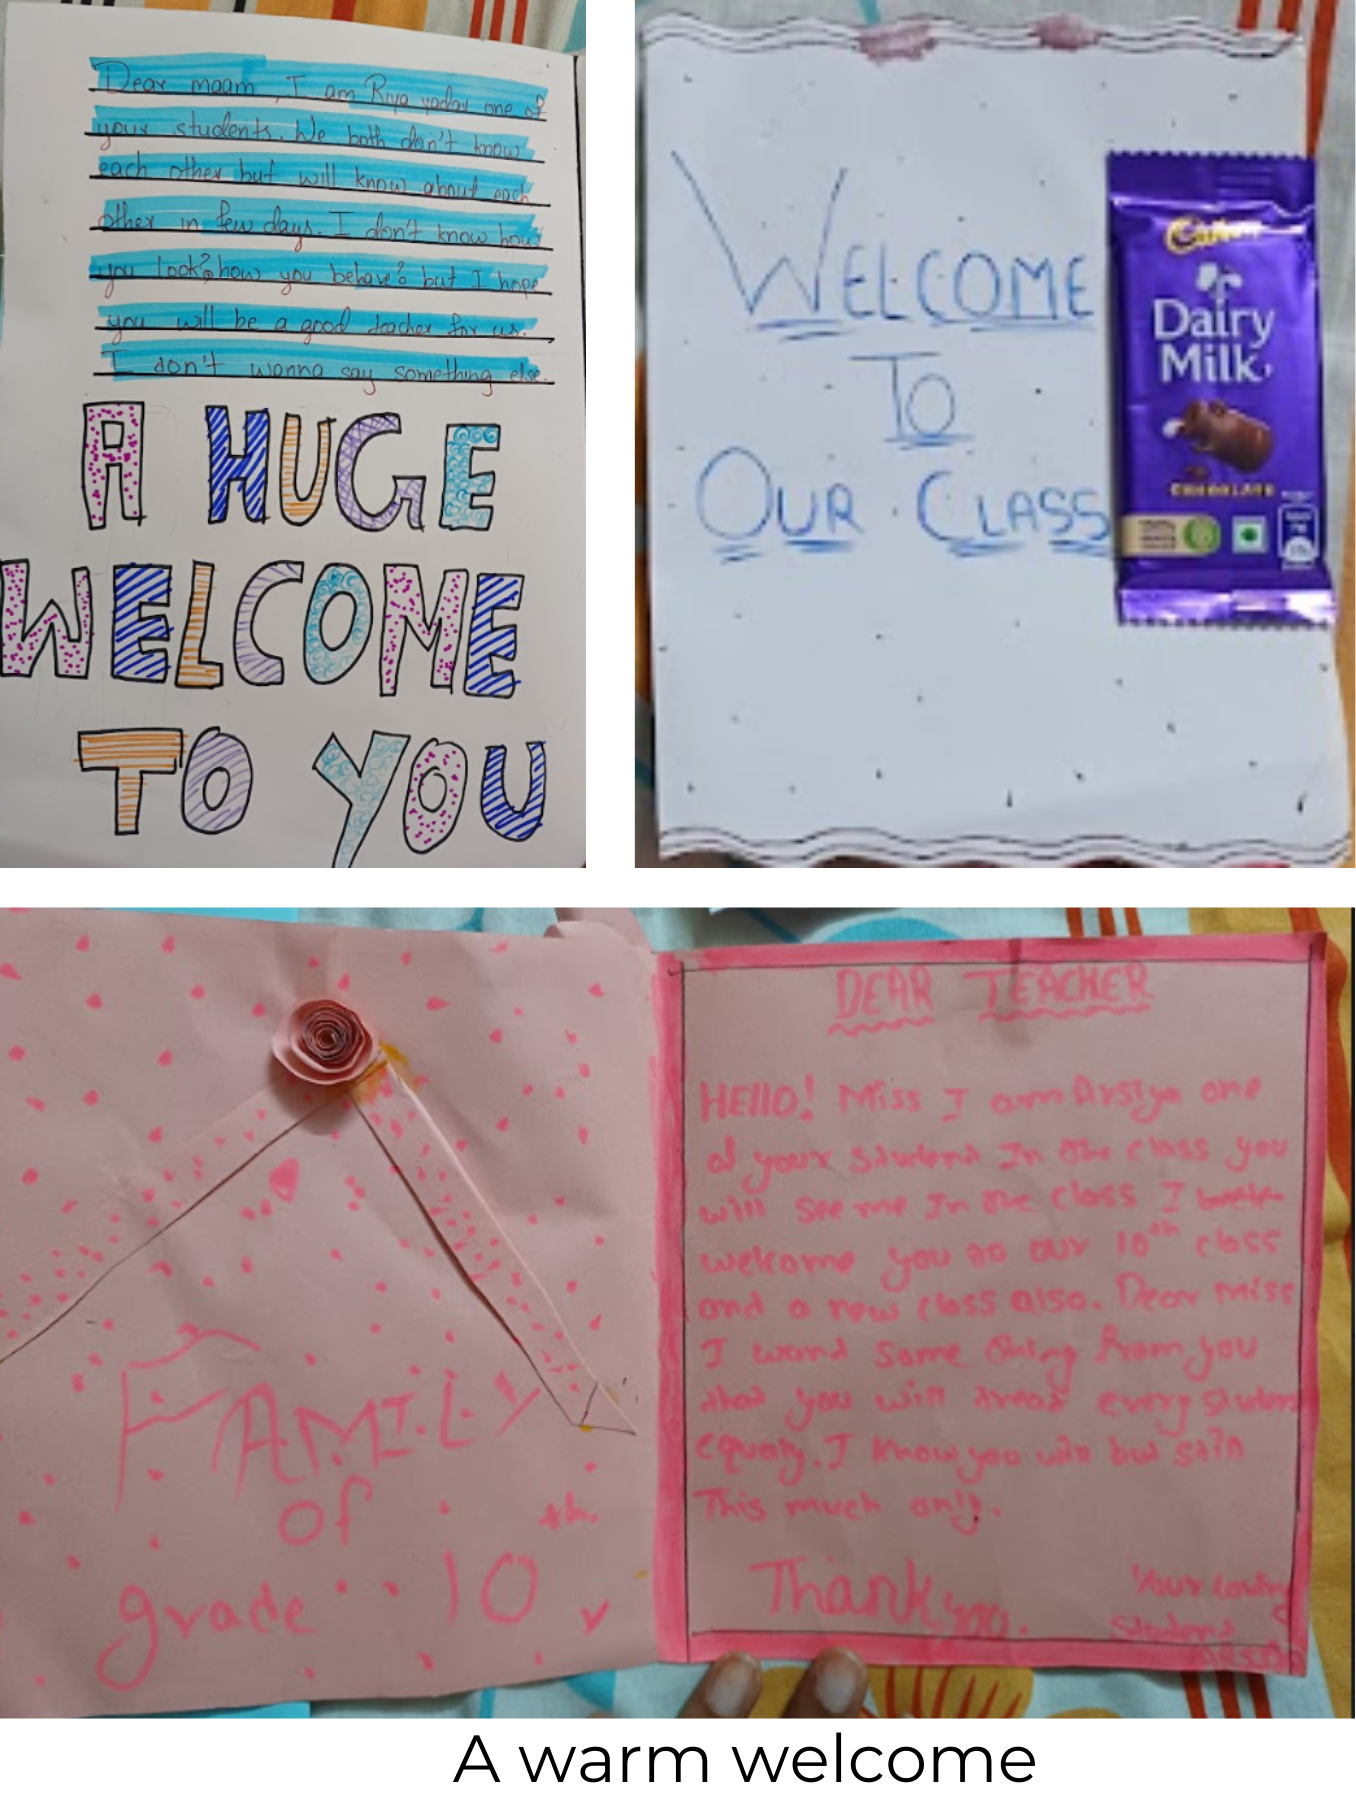 Dear maam, I am Riya yadav one of
your students. We both don't know
each other but will know about each
other in few days. I don't know how
you look? how you behave? but I hope
you will be a good teacher for us.
I don't wanna say something else.
A HUGE
WELCOME
TO YOU
WELCOME
TO
OUR CLASS
Cadbury
Dairy
Milk
CHOCOLATE
FAMILY
of
grade 10 th
DEAR TEACHER
HEllO! Miss I am Arsiya one
of your student In the class you
will see me In the class I
welcome you to our 10th class
and a new class also. Dear miss
I want some thing from you
that you will treat every student
equaly. I know you will but still
This much only.
Thank you.
Your loving
Student
A warm welcome